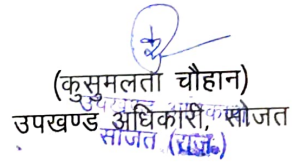 (कुसुमलता चौहान)
उपखण्ड अधिकारी, सोजत
उपखण्ड अधिकारी
सोजत (राज.)